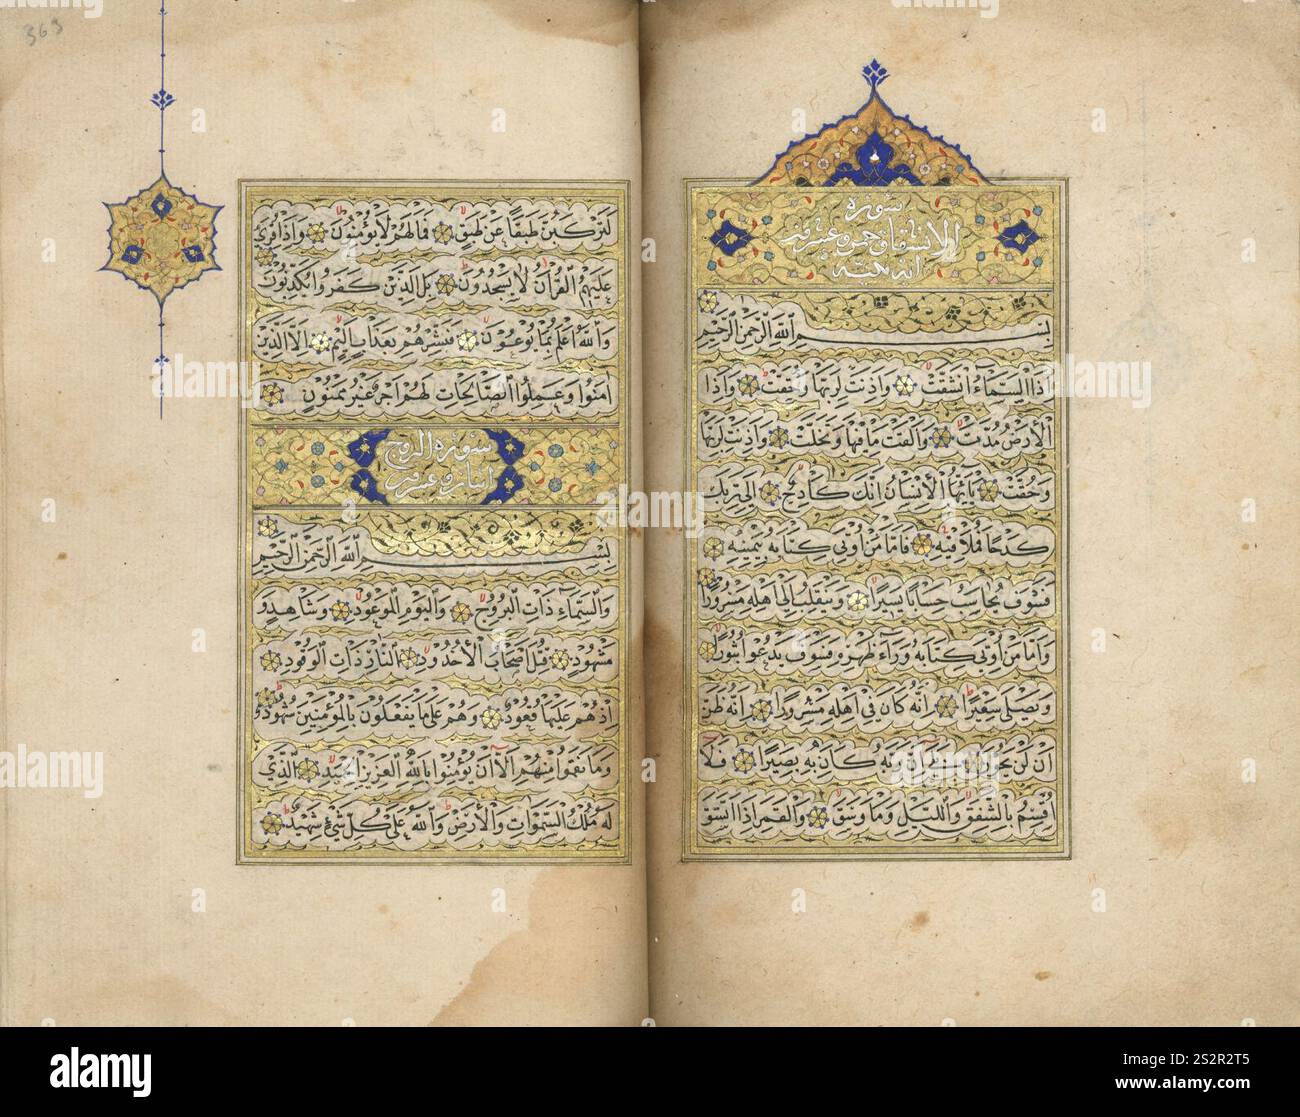 سورة
الانشقاق خمس وعشرون
آية مكية
بِسْمِ اللَّهِ الرَّحْمَنِ الرَّحِيمِ
إِذَا السَّمَاءُ انْشَقَّتْ وَأَذِنَتْ لِرَبِّهَا وَحُقَّتْ وَإِذَا
الْأَرْضُ مُدَّتْ وَأَلْقَتْ مَا فِيهَا وَتَخَلَّتْ وَأَذِنَتْ لِرَبِّهَا
وَحُقَّتْ يَا أَيُّهَا الْإِنْسَانُ إِنَّكَ كَادِحٌ إِلَى رَبِّكَ
كَدْحًا فَمُلَاقِيهِ فَأَمَّا مَنْ أُوتِيَ كِتَابَهُ بِيَمِينِهِ
فَسَوْفَ يُحَاسَبُ حِسَابًا يَسِيرًا وَيَنْقَلِبُ إِلَى أَهْلِهِ مَسْرُورًا
وَأَمَّا مَنْ أُوتِيَ كِتَابَهُ وَرَاءَ ظَهْرِهِ فَسَوْفَ يَدْعُوا ثُبُورًا
وَيَصْلَى سَعِيرًا إِنَّهُ كَانَ فِي أَهْلِهِ مَسْرُورًا إِنَّهُ ظَنَّ
أَنْ لَنْ يَحُورَ بَلَى إِنَّ رَبَّهُ كَانَ بِهِ بَصِيرًا فَلَا
أُقْسِمُ بِالشَّفَقِ وَاللَّيْلِ وَمَا وَسَقَ وَالْقَمَرِ إِذَا اتَّسَقَ
363
لَتَرْكَبُنَّ طَبَقًا عَنْ طَبَقٍ فَمَا لَهُمْ لَا يُؤْمِنُونَ وَإِذَا قُرِئَ
عَلَيْهِمُ الْقُرْآنُ لَا يَسْجُدُونَ بَلِ الَّذِينَ كَفَرُوا يُكَذِّبُونَ
وَاللَّهُ أَعْلَمُ بِمَا يُوعُونَ فَبَشِّرْهُمْ بِعَذَابٍ أَلِيمٍ إِلَّا الَّذِينَ
آمَنُوا وَعَمِلُوا الصَّالِحَاتِ لَهُمْ أَجْرٌ غَيْرُ مَمْنُونٍ
سورة البروج
اثنان وعشرون
بِسْمِ اللَّهِ الرَّحْمَنِ الرَّحِيمِ
وَالسَّمَاءِ ذَاتِ الْبُرُوجِ وَالْيَوْمِ الْمَوْعُودِ وَشَاهِدٍ وَ
مَشْهُودٍ قُتِلَ أَصْحَابُ الْأُخْدُودِ النَّارِ ذَاتِ الْوَقُودِ
إِذْ هُمْ عَلَيْهَا قُعُودٌ وَهُمْ عَلَى مَا يَفْعَلُونَ بِالْمُؤْمِنِينَ شُهُودٌ
وَمَا نَقَمُوا مِنْهُمْ إِلَّا أَنْ يُؤْمِنُوا بِاللَّهِ الْعَزِيزِ الْحَمِيدِ الَّذِي
لَهُ مُلْكُ السَّمَوَاتِ وَالْأَرْضِ وَاللَّهُ عَلَى كُلِّ شَيْءٍ شَهِيدٌ
alamy
www.alamy.com
2S2R2T5